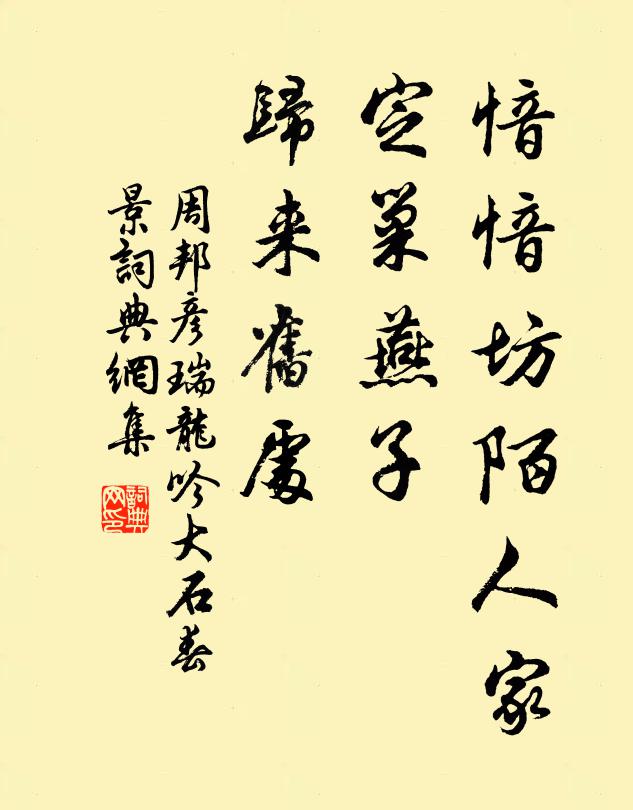 愔愔坊陌人家
定巢燕子
歸來舊處
周邦彥瑞龍吟大石春
景詞典網集
詞典
网印